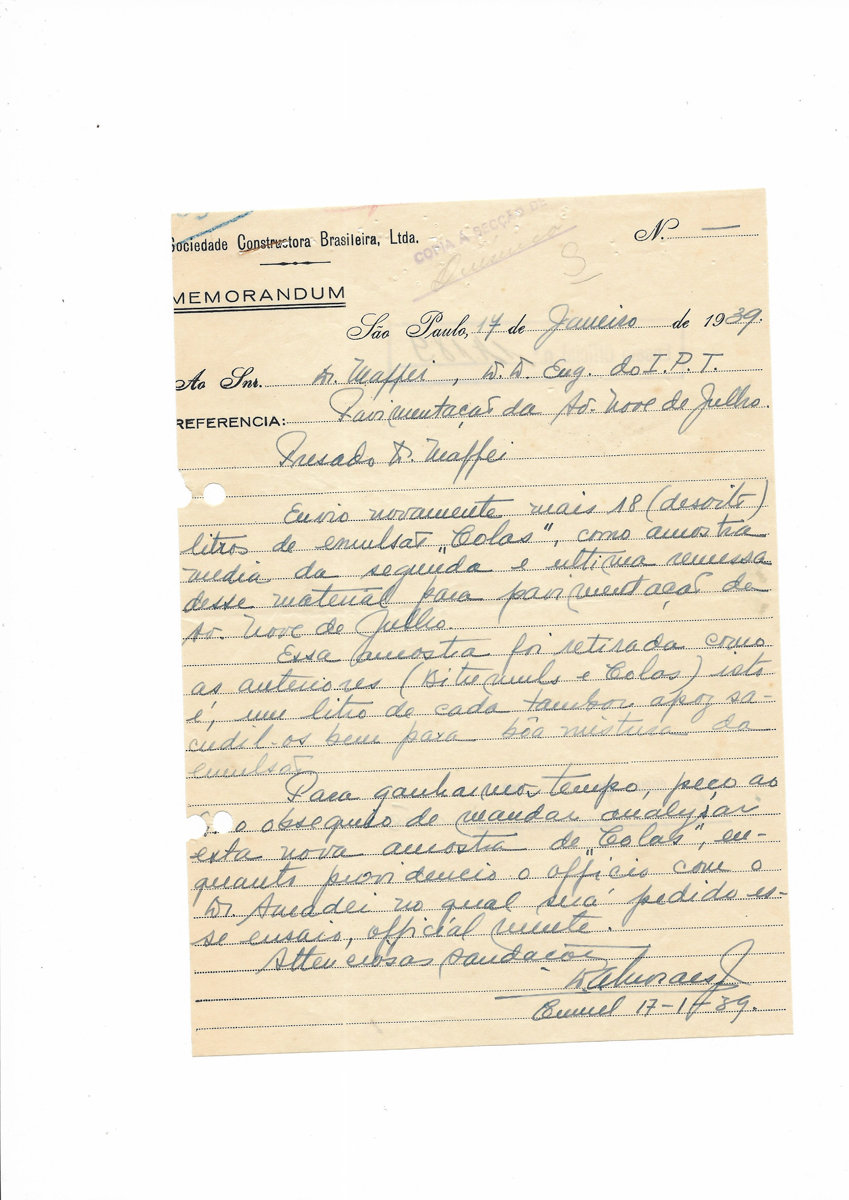 Sociedade Constructora Brasileira, Ltda.
COPIA Á SECÇÃO DE
N. —
MEMORANDUM
São Paulo, 17 de Janeiro de 1939.
Ao Snr. Dr. Maffei, D. D. Eng. do I. P. T.
REFERENCIA: Pavimentação da Av. Nove de Julho.
Presado Dr. Maffei
Envio novamente mais 18 (desoito)
litros de emulsão "Colas", como amostra
media da segunda e ultima remessa
desse material para pavimentação de
Av. Nove de Julho.
Essa amostra foi retirada como
as anteriores (Bitumuls e Colas) isto
é, um litro de cada tambor apoz sa-
cudil-os bem para bôa mistura da
emulsão
Para ganharmos tempo, peço ao
o obsequio de mandar analysar
esta nova amostra de "Colas", en-
quanto providencio o officio com o
Dr. Amadei no qual será pedido es-
se ensaio, officialmente.
Attenciosas saudações
17-1-39.